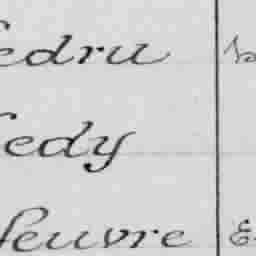 edru
edy
feuvre